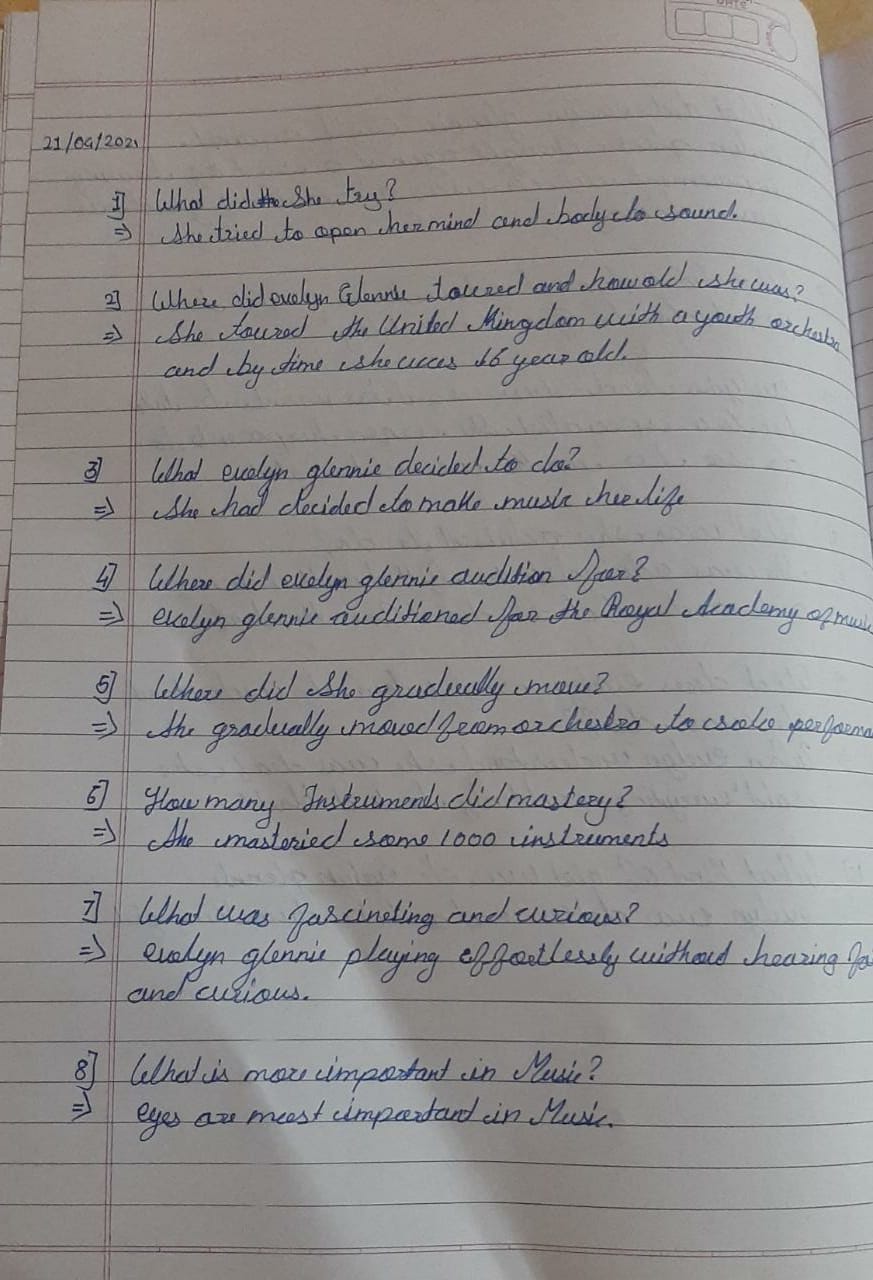 DATE
21/09/2021
1] What did the She try?
=> She tried to open her mind and body to sound.
2] Where did evelyn Glennie toured and how old she was?
=> She toured the United Kingdom with a youth orchestra
and by time she was 16 year old.
3] What evelyn glennie decided to do?
=> She had decided to make music her life
4] Where did evelyn glennie audition for?
=> evelyn glennie auditioned for the Royal Academy of music
5] Where did She gradually move?
=> She gradually moved from orchestra to solo performa
6] How many Instruments did mastery?
=> She masteried some 1000 instruments
7] What was fascinating and curious?
=> evelyn glennie playing effortlessly without hearing fa
and curious.
8] What is more important in Music?
=> eyes are most important in Music.